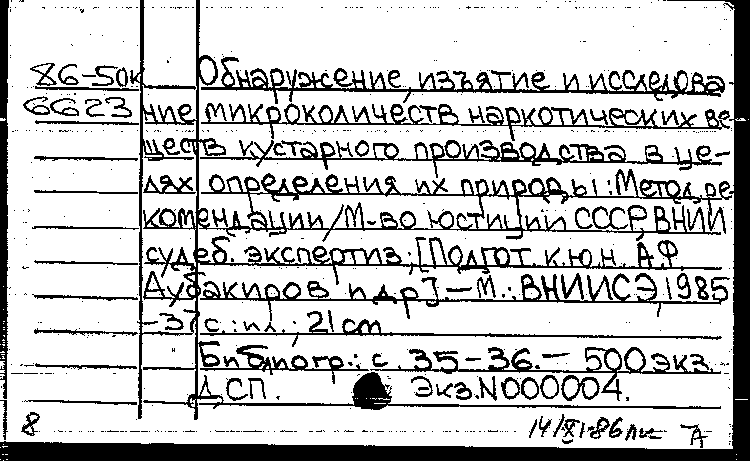 86-50к Обнаружение, изъятие и исследова-
6623 ние микроколичеств наркотических ве-
ществ кустарного производства в це-
лях определения их природы: Метод. ре-
комендации / М-во юстиции СССР, ВНИИ
судеб. экспертиз; [Подгот. к.ю.н. А.Ф.
Аубакиров и др.]. — М.: ВНИИСЭ, 1985
-37 с.: ил.; 21 cm.
Библиогр.: с. 35-36. — 500 экз.
ДСП. Экз. N000004.
8 14/XI-86 А